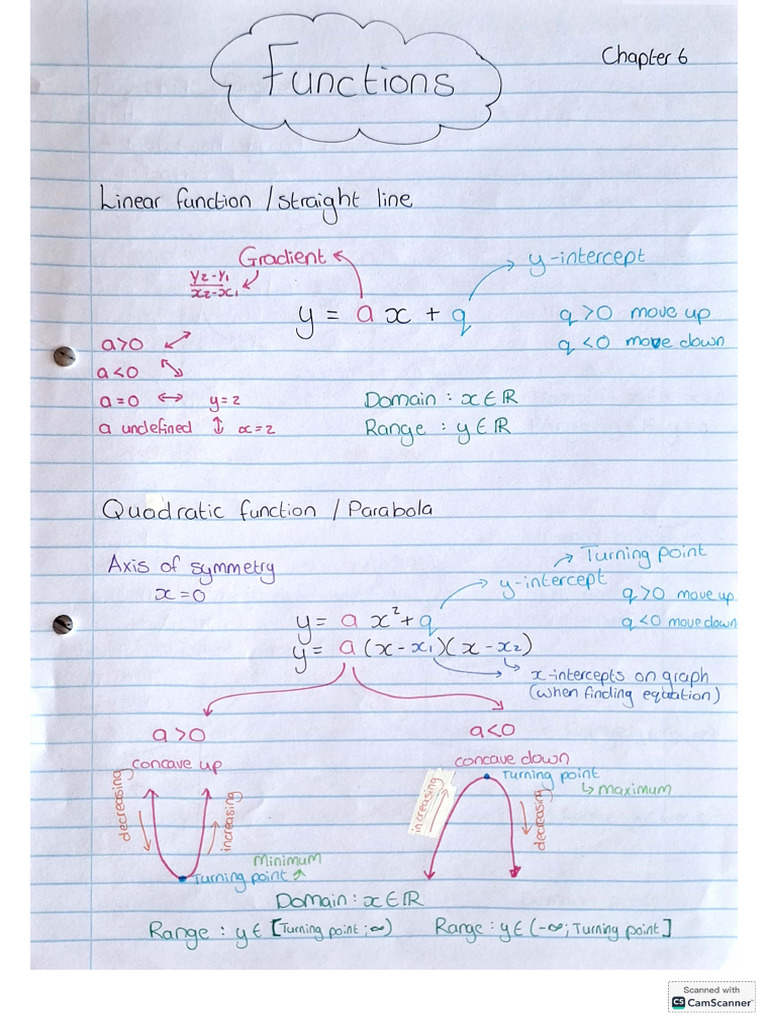 Functions
Chapter 6
Linear function / straight line
Gradient
y-intercept
y₂-y₁
x₂-x₁
y = ax + q
q >0 move up
q <0 move down
a>0 ↗
a<0 ↘
a=0 ↔ y=2
a undefined ↕ x=2
Domain : x∈ℝ
Range : y∈ℝ
Quadratic function / Parabola
Axis of symmetry
x=0
Turning point
y-intercept
q >0 move up
q <0 move down
y= a x²+q
y= a (x-x₁)(x-x₂)
x-intercepts on graph
(when finding equation)
a >0
concave up
decreasing
increasing
Minimum
Turning point
a<0
concave down
Turning point
maximum
increasing
decreasing
Domain : x∈ℝ
Range : y∈ [Turning point ; ∞)
Range : y∈ (-∞; Turning point]
Scanned with
CS CamScanner